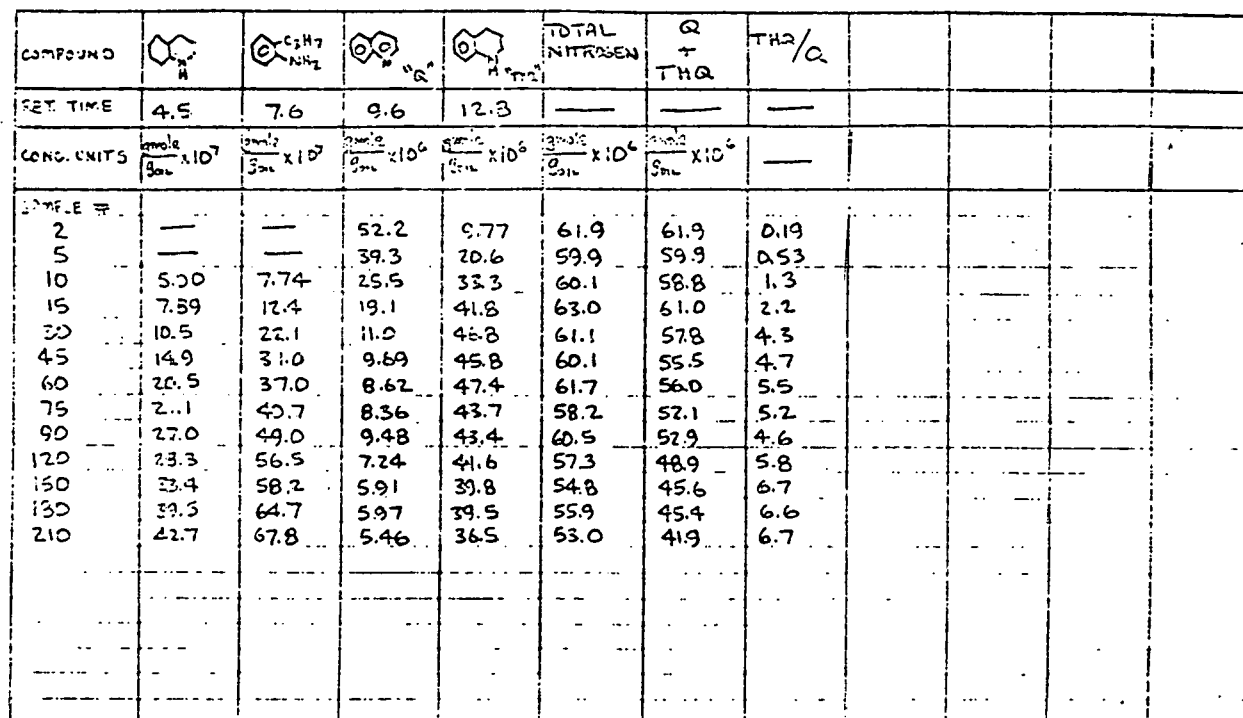 COMPOUND H C3H7 NH2 N "Q" N H "THQ" TOTAL NITROGEN Q + THQ THQ/Q
RET. TIME 4.5 7.6 9.6 12.3 — — —
CONC. UNITS gmole/g OIL x10^7 gmole/g OIL x10^7 gmole/g OIL x10^6 gmole/g OIL x10^6 gmole/g OIL x10^6 gmole/g OIL x10^6 —
SAMPLE #
2 — — 52.2 9.77 61.9 61.9 0.19
5 — — 39.3 20.6 59.9 59.9 0.53
10 5.00 7.74 25.5 33.3 60.1 58.8 1.3
15 7.59 12.4 19.1 41.8 63.0 61.0 2.2
30 10.5 22.1 11.0 46.8 61.1 57.8 4.3
45 14.9 31.0 9.69 45.8 60.1 55.5 4.7
60 20.5 37.0 8.62 47.4 61.7 56.0 5.5
75 40.7 8.36 43.7 58.2 52.1 5.2
90 27.0 49.0 9.48 43.4 60.5 52.9 4.6
120 56.5 7.24 41.6 57.3 48.9 5.8
150 33.4 58.2 5.91 39.8 54.8 45.6 6.7
180 39.5 64.7 5.97 39.5 55.9 45.4 6.6
210 42.7 67.8 5.46 36.5 53.0 41.9 6.7